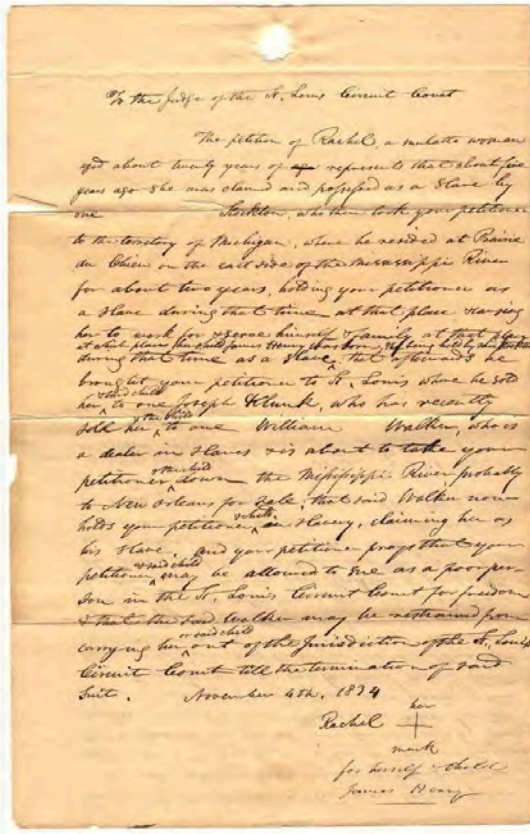 To the Judge of the St. Louis Circuit Court
The petition of Rachel, a mulatto woman
aged about twenty years of age represents that about five
years ago she was claimed and possessed as a Slave by
one Stockton, who then took your petitioner
to the territory of Michigan, where he resided at Prairie
du Chien on the east side of the Mississippi River
for about two years, holding your petitioner as
a slave during that time at that place & causing
her to work for & serve himself & family at that place
at which place her child James Henry was born, & being held by said Stockton
during that time as a slave, that afterwards he
brought your petitioner to St. Louis where he sold
& said child
her to one Joseph Klunk, who has recently
& the child
sold her to one William Walker, who is
a dealer in slaves & is about to take your
petitioner & her child down the Mississippi River probably
to New Orleans for Sale; that said Walker now
holds your petitioner & child in slavery, claiming her as
his slave, and your petitioner prays that your
petitioner & said child may be allowed to sue as a poor per-
son in the St. Louis Circuit Court for freedom
& that the said Walker may be restrained from
or said child
carrying her out of the Jurisdiction of the St. Louis
Circuit Court till the termination of said
suit. November 4th, 1834
her
Rachel +
mark
for herself & child
James Henry